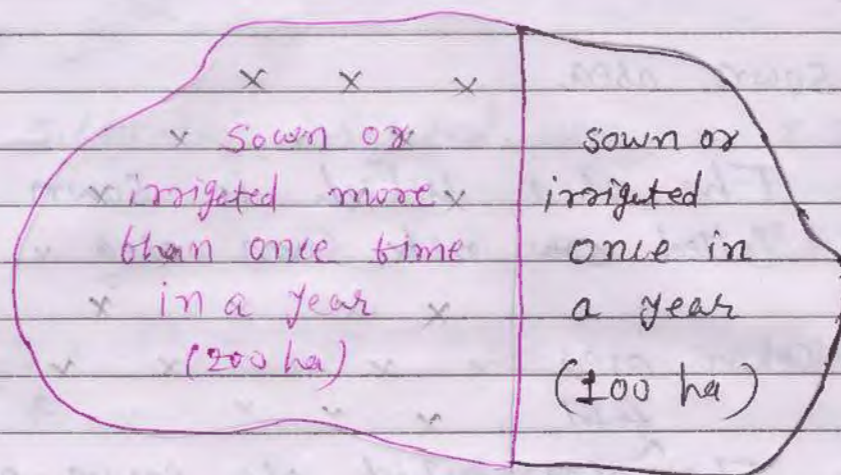 sown or
irrigeted more
than once time
in a year
(200 ha)
sown or
irriguted
once in
a year
(100 ha)